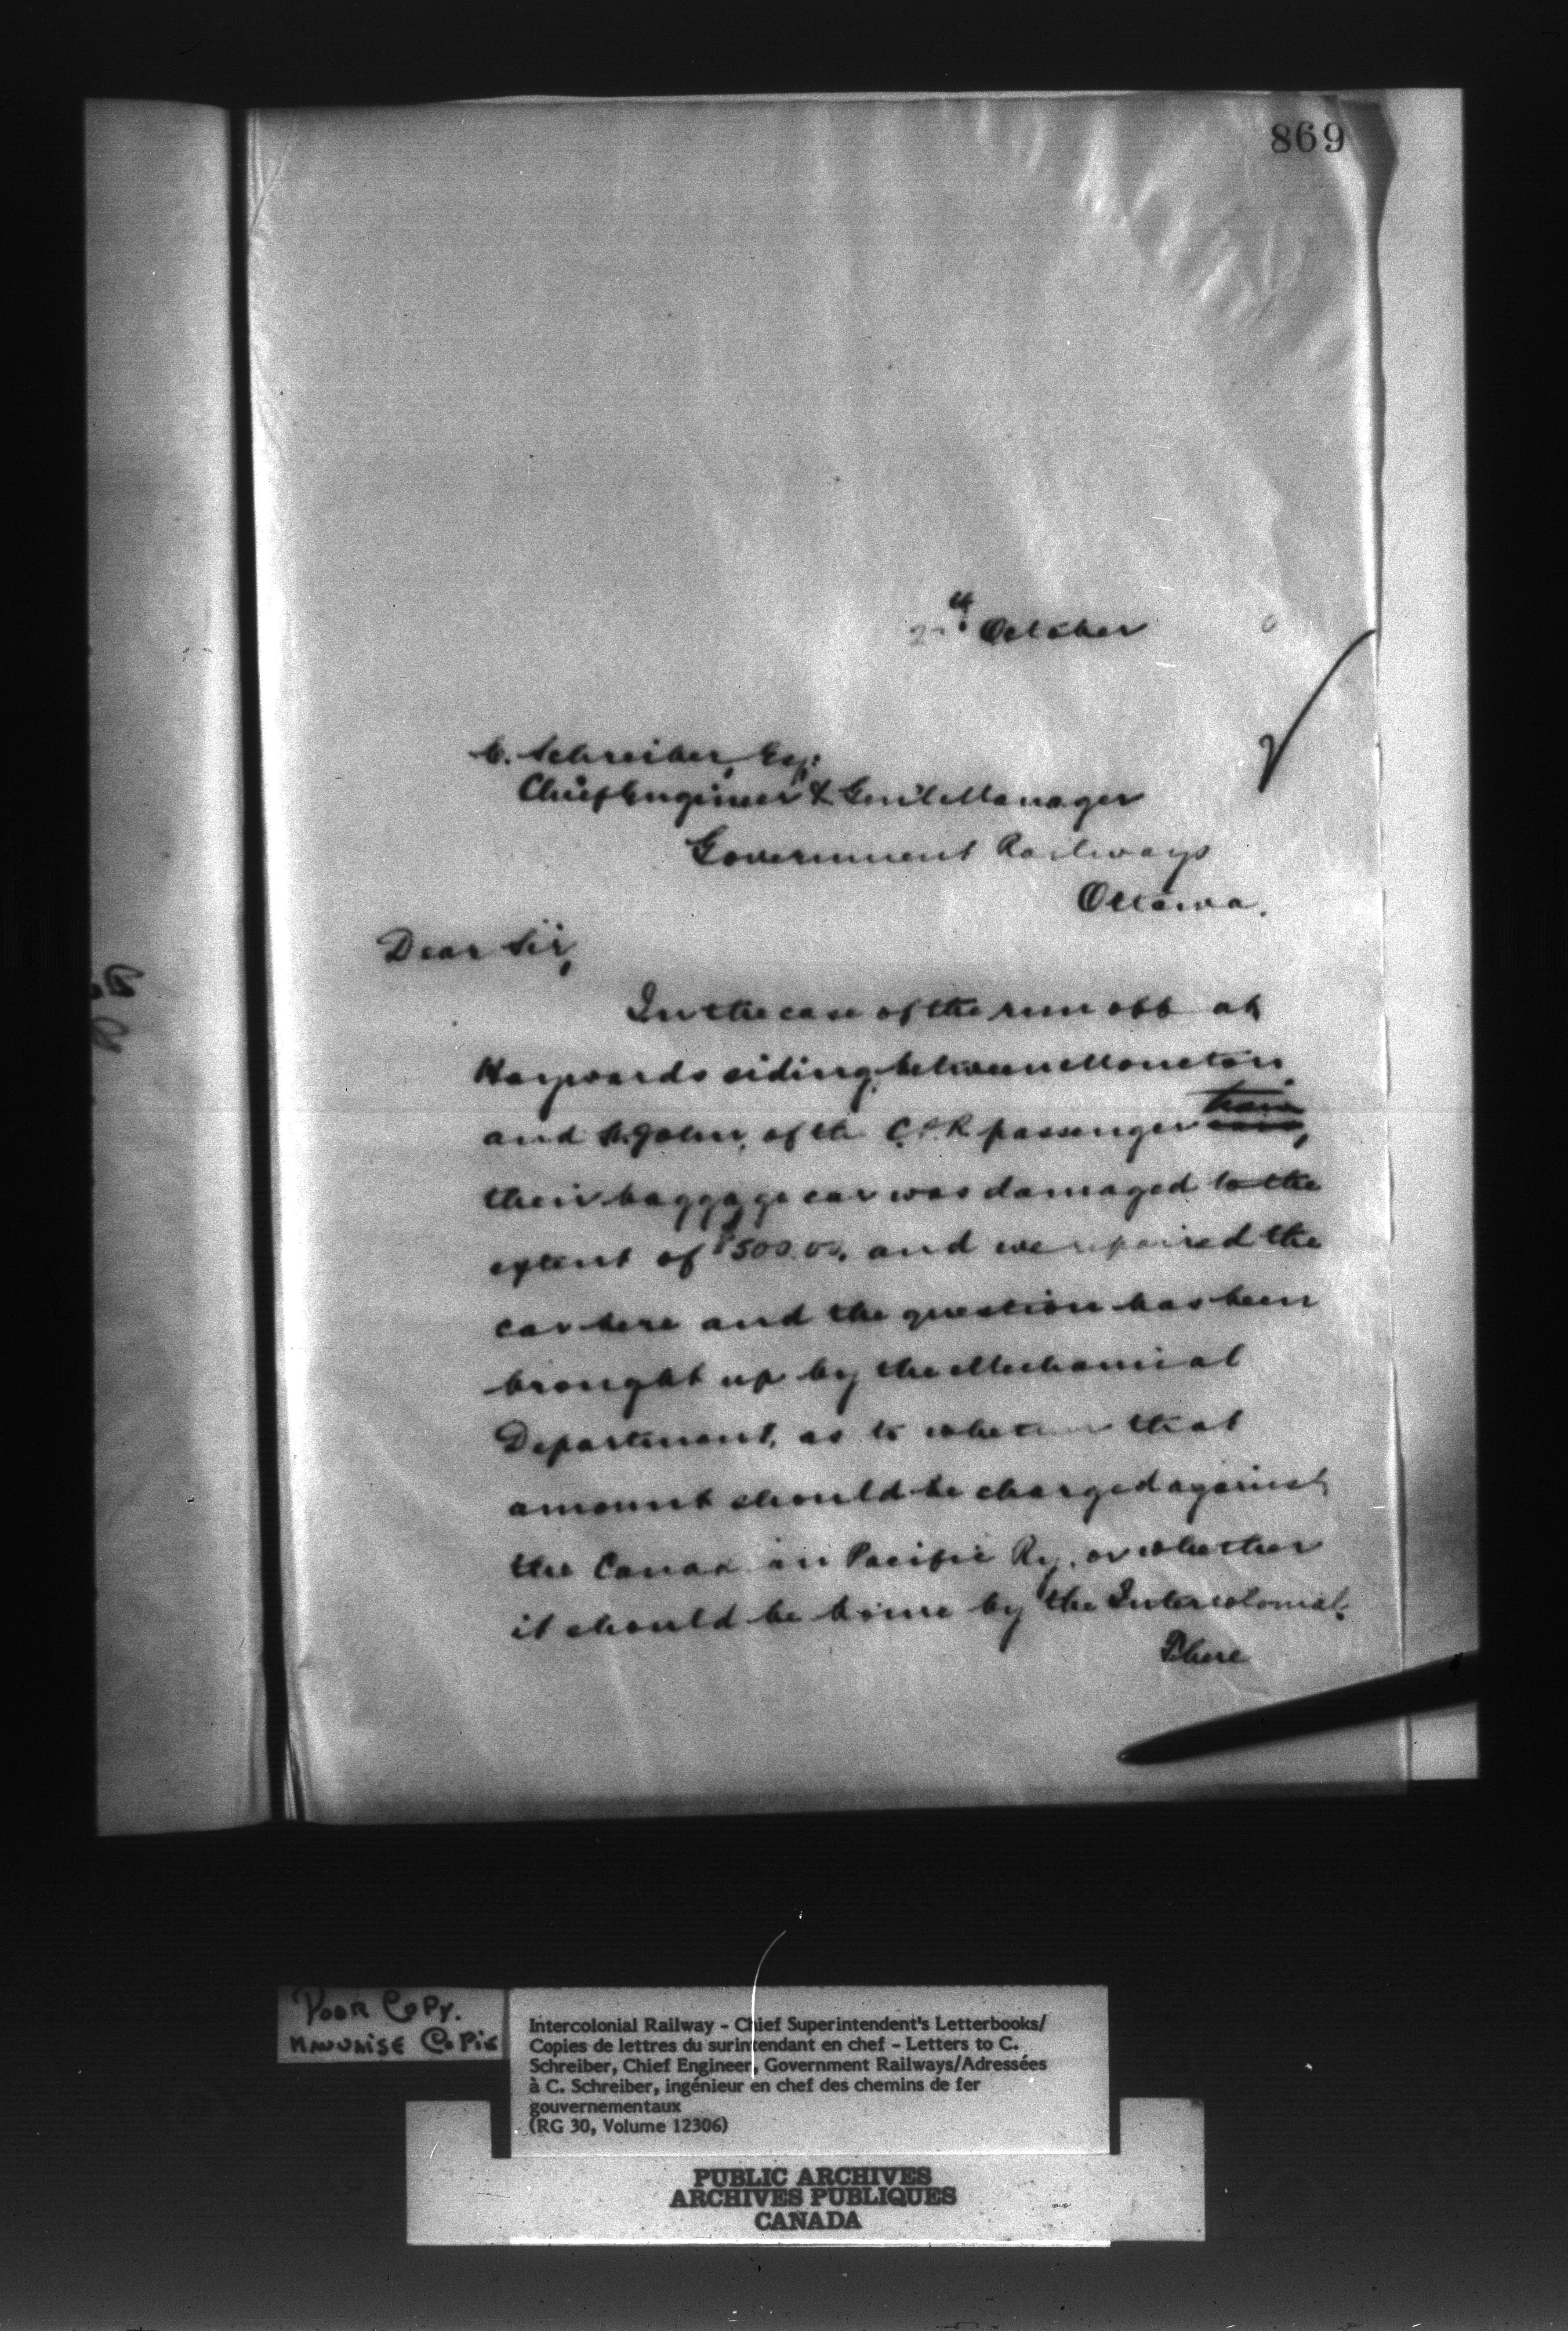 869
th October
C. Schreiber, Esq:
Chief Engineer & Gen'l Manager
Government Railways
Ottawa.
Dear Sir,
In the case of the run off at
Haywards siding, between Moncton
and St. John, of the C.P.R. passenger train,
their baggage car was damaged to the
extent of $500.00, and we repaired the
car here and the question has been
brought up by the Mechanical
Department, as to whether that
amount should be charged against
the Canadian Pacific Ry, or whether
it should be borne by the Intercolonial.
There
Poor Copy.
Mauvaise Copie
Intercolonial Railway - Chief Superintendent's Letterbooks/
Copies de lettres du surintendant en chef - Letters to C.
Schreiber, Chief Engineer, Government Railways/Adressées
à C. Schreiber, ingénieur en chef des chemins de fer
gouvernementaux
(RG 30, Volume 12306)
PUBLIC ARCHIVES
ARCHIVES PUBLIQUES
CANADA